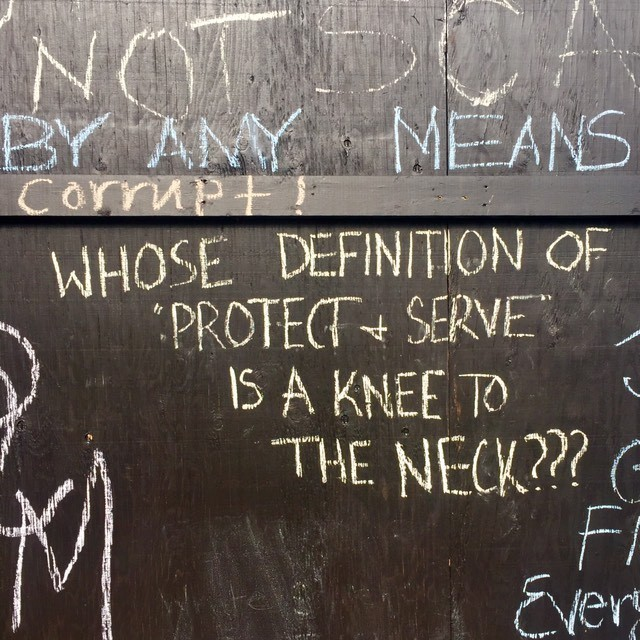 NOT SCA
BY ANY MEANS
corrupt!
WHOSE DEFINITION OF
"PROTECT + SERVE"
IS A KNEE TO
THE NECK???
M
FI
Every